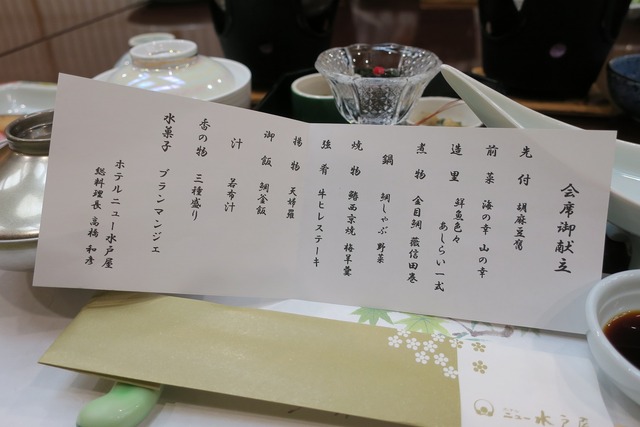 会席御献立
先付 胡麻豆腐
前菜 海の幸 山の幸
造里 鮮魚色々
あしらい一式
煮物 金目鯛 薇信田巻
鍋 鯛しゃぶ 野菜
焼物 鰆西京焼 梅羊羹
強肴 牛ヒレステーキ
揚物 天婦羅
御飯 鯛釜飯
汁 若布汁
香の物 三種盛り
水菓子 ブランマンジェ
ホテルニュー水戸屋
総料理長 高橋 和彦
ホテル
ニュー水戸屋